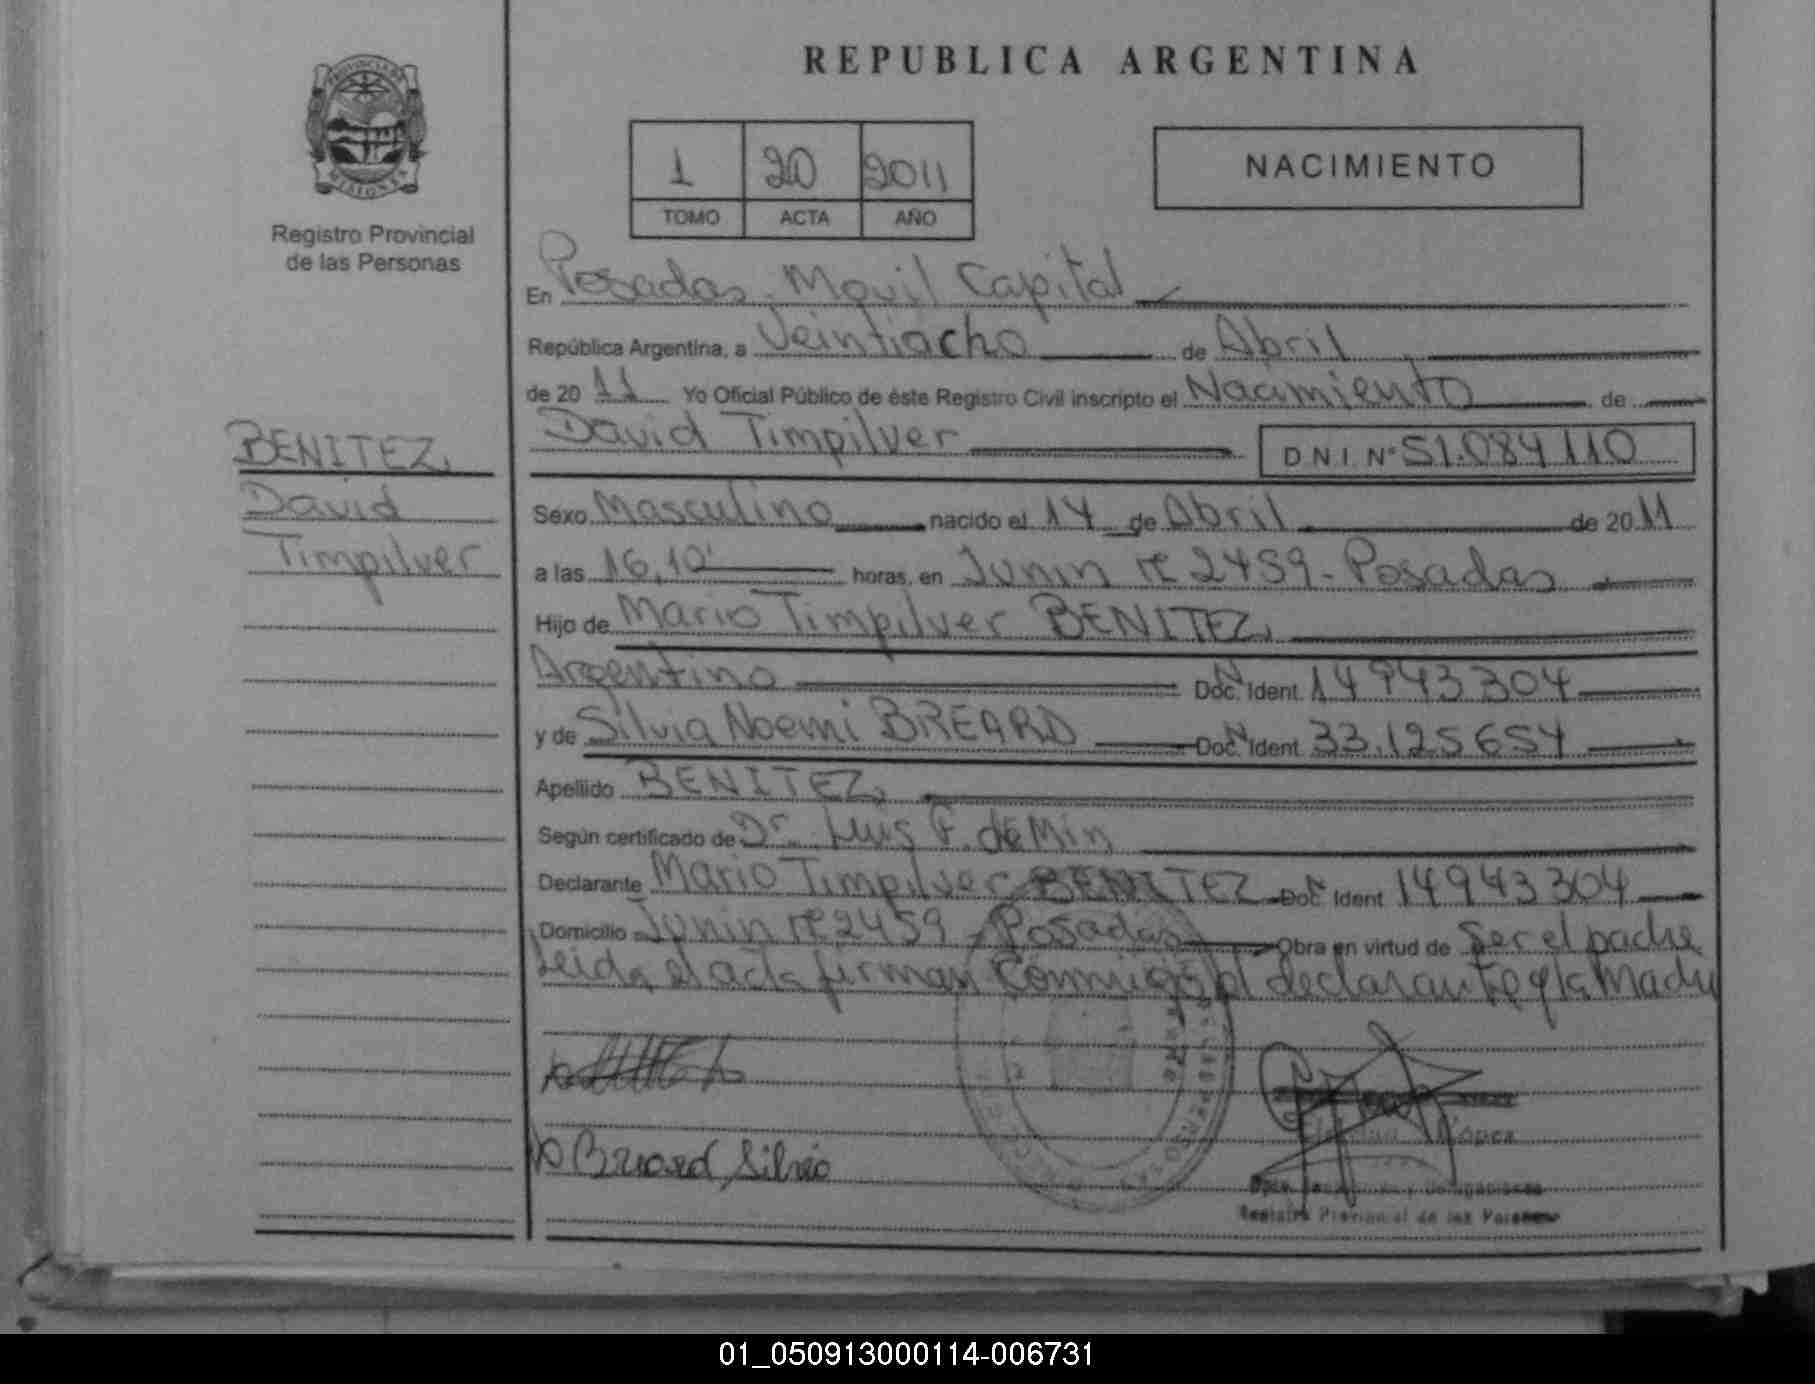 REPUBLICA ARGENTINA
PROVINCIA DE
MISIONES
Registro Provincial
de las Personas
1 20 2011
TOMO ACTA AÑO
NACIMIENTO
En Posadas Movil Capital
República Argentina, a Veintiocho de Abril
de 20 11 Yo Oficial Público de éste Registro Civil inscripto el Nacimiento de
David Timpilver DNI Nº 51.084110
BENITEZ,
David
Timpilver
Sexo Masculino nacido el 14 de Abril de 20 11
a las 16,10 horas, en Junin nº 2459 - Posadas
Hijo de Mario Timpilver BENITEZ,
Argentino Doc. Ident. Nº 14943304
y de Silvia Noemi BREARD Doc. Ident. Nº 33.125654
Apellido BENITEZ,
Según certificado de Dr. Luis F. de Min
Declarante Mario Timpilver BENITEZ Doc. Ident. Nº 14943304
Domicilio Junin nº 2459 - Posadas Obra en virtud de Ser el padre
Leida el acta firman Conmigo el declarante y la Madre
Breard, Silvia
López
Registro Provincial de las Personas
01_050913000114-006731